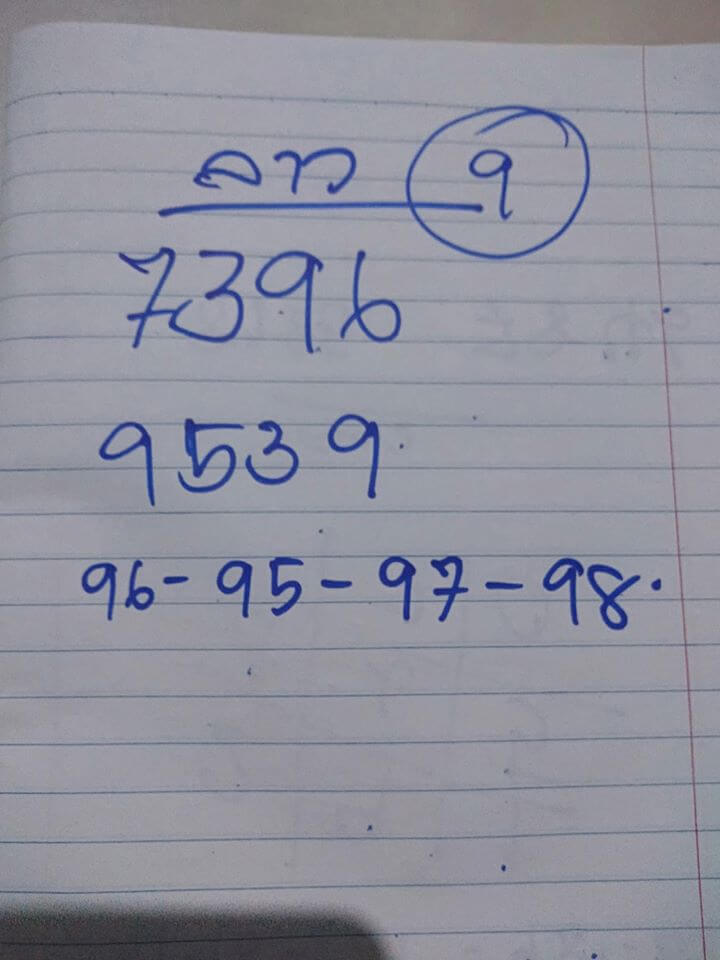 ลาว 9
7396
9539
96-95-97-98.